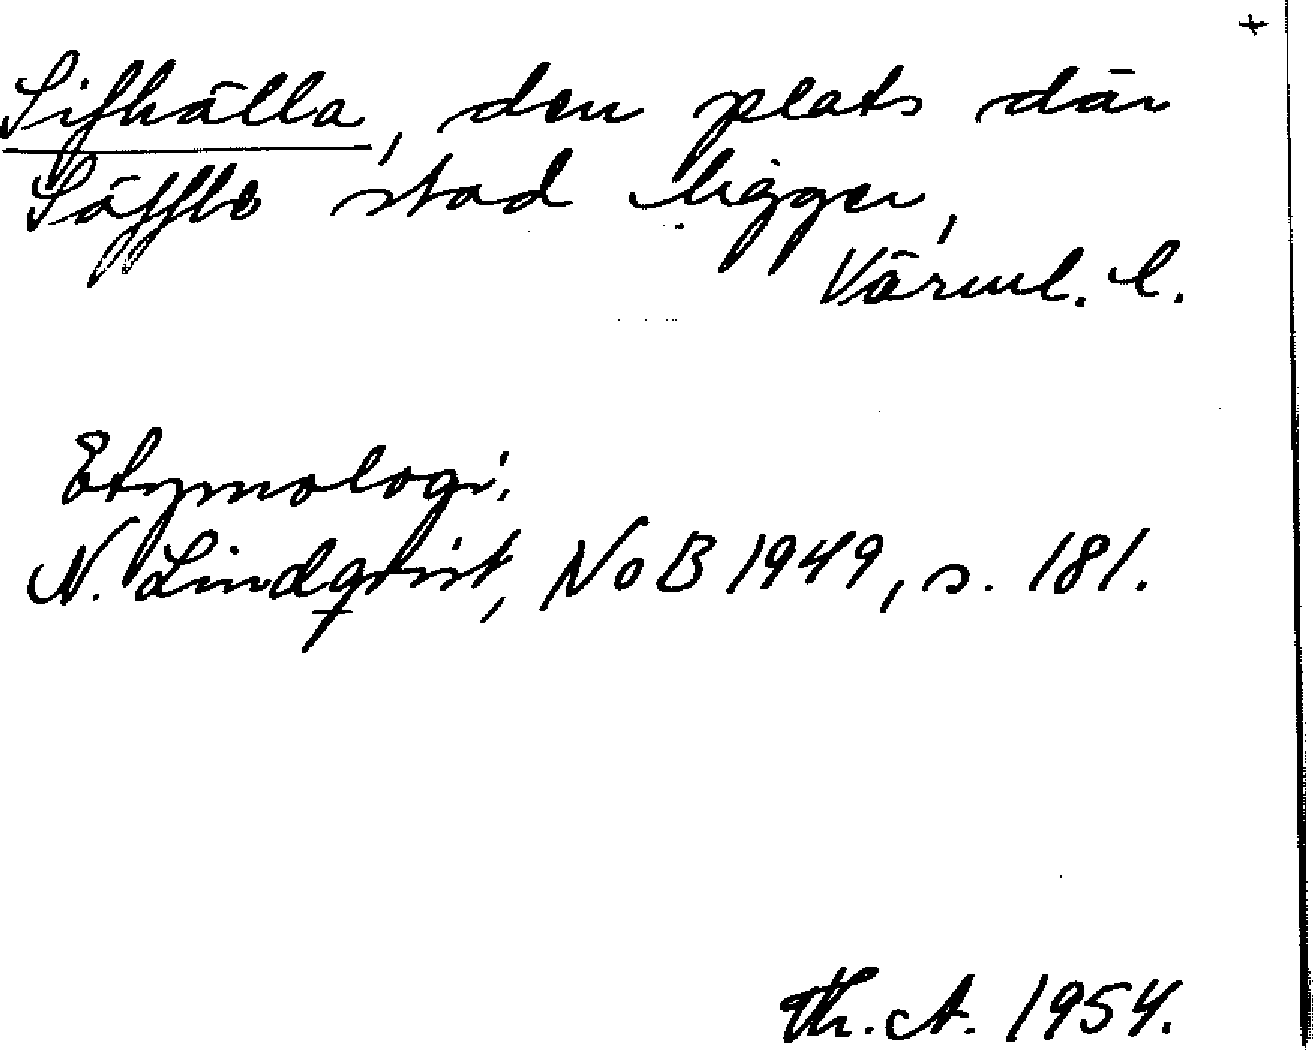 +
Sifhälla, den plats där
Säffle stad ligger,
Värml. l.
Etymologi:
N. Lindqvist, NoB 1949, s. 181.
Th. A. 1954.